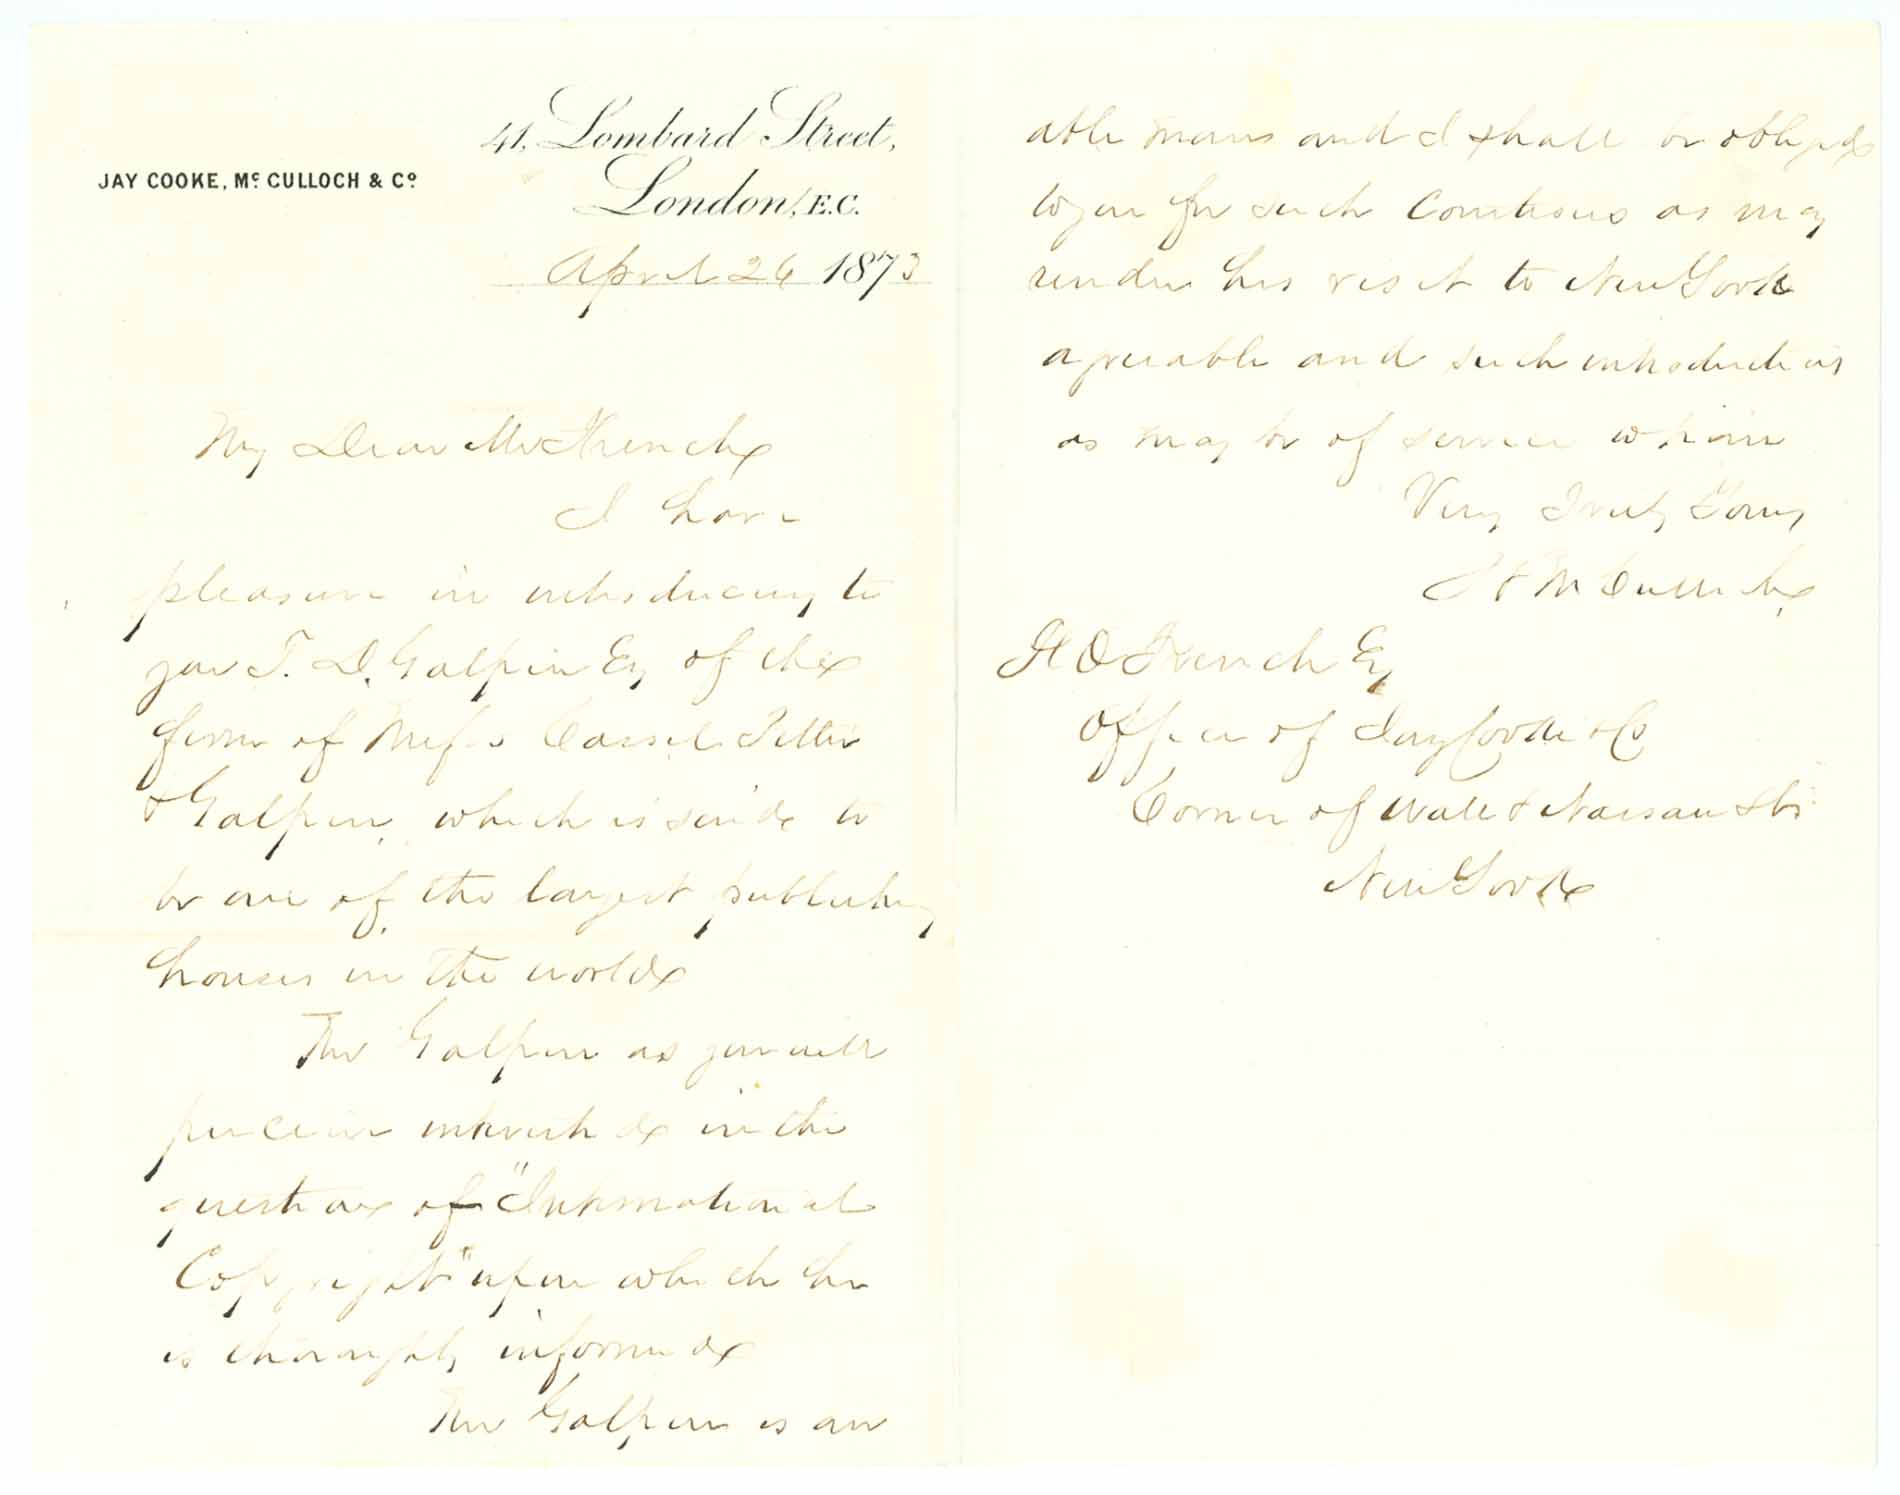 JAY COOKE, Mc CULLOCH & Co
41, Lombard Street,
London, E.C.
April 26 1873
My Dear Mr French
I have
pleasure in introducing to
you T. D. Galpin Esq of the
firm of Messrs Cassel Petter
& Galpin, which is said to
be one of the largest publishing
houses in the world
Mr Galpin as you will
perceive interested in the
question of "International
Copyright" upon which he
is thoroughly informed
Mr Galpin is an
able man and I shall be obliged
to you for such courtesies as may
render his visit to New York
agreeable and such introductions
as may be of service to him
Very Truly Yours
H McCulloch
H O French Esq
Office of Jay Cooke & Co
Corner of Wall & Nassau Sts
New York